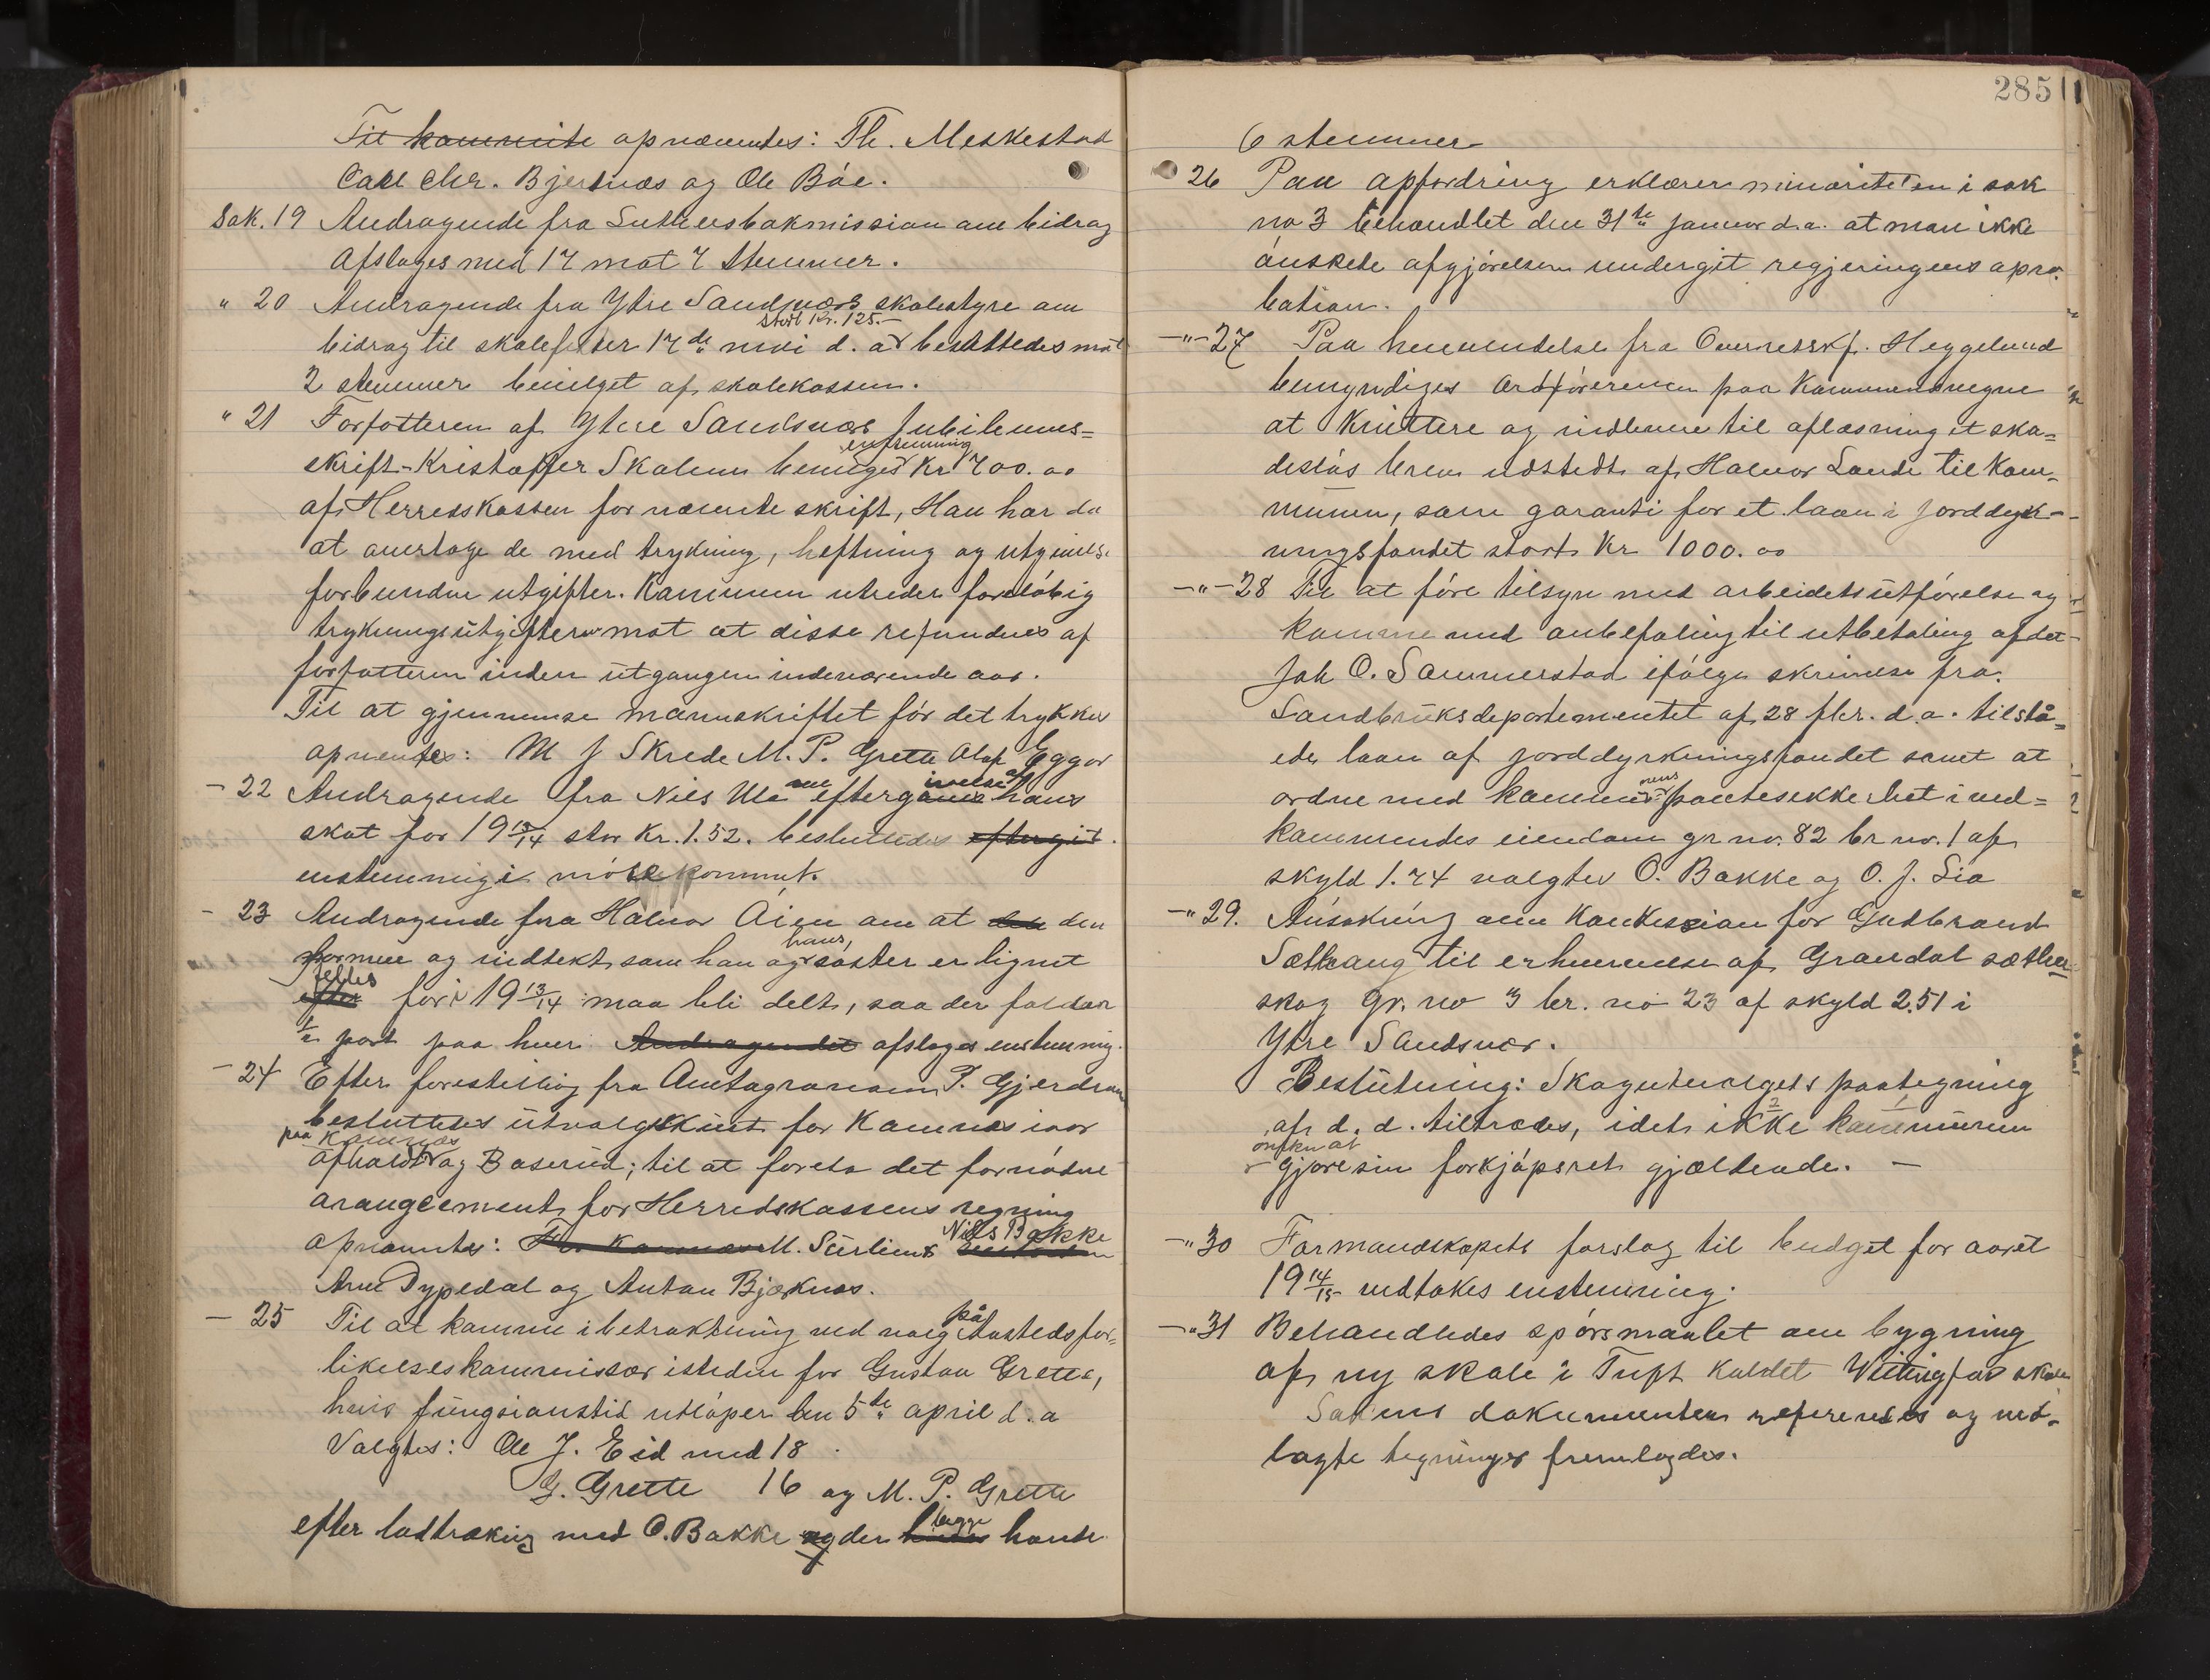 Til kommite opnævntes: Th. Meskestad
Carl Chr. Bjertnæs og Ole Bøe.
Sak. 19 Andragende fra Luthersbokmission om bidrag
Afsloges med 17 mot 7 stemmer.
" 20 Andragende fra Ytre Sandsværs skolestyre om
bidrag til skolefester 17de mai d. år stort Kr. 125.- besluttedes mot
2 stemmer bevilget af skolekassen.
" 21 Forfatteren af Ytre Sandsværs Jubileums=
skrift - Kristoffer Skolem bevilges enstemmig Kr 700.00
af Herredskassen for nævnte skrift, Han har da
at overtage de med trykning, heftning og utgivelse
forbundne utgifter. Kommunen utreder foreløbig
trykningsutgifterne mot at disse refunderes af
forfatteren inden utgangen indeværende aar.
Til at gjennemse manuskriftet før det trykkes
opnevntes: M J Skrede M. P. Grette Olaf Eggar
- 22 Andragende fra Niels Ula om eftergivelse af hans
skat for 19 13/14 stor Kr. 1.52. besluttedes eftergit.
enstemmig i møtekommet.
- 23 Andragende fra Halvor Åien om at den den
formue og indtekt som han og hans søster er lignet
efter felles for i 19 13/14 maa bli delt, saa der falder
1/2 part paa hver. Andragendet afsloges enstemmig.
- 24 Efter forestilling fra Amtagronom P. Gjerdrum
besluttedes utvalgskuet for Komnæs iaar
afholdt paa Komnæs og Baserud; til at foreta det fornødne
arangeement for Herredskassens regning
opnævntes: M. Sürlien Nils Bakke
Arne Dypedal og Anton Bjerknæs.
- 25 Til at komme i betraktning ved valg på Anstedsfor-
likelseskommissær isteden for Gustav Grette,
hvis fungsionstid utløper den 5te april d. a
Valgtes: Ole J. Eid med 18
G. Grette 16 og M. P. Grette
efter lodtrækning med O. Bakke og der begge havde
285
6 stemmer
26 Paa opfordring erklærer minoriteten i sak
no 3 behandlet den 31te januar d.a. at man ikke
ønskede afgjørelsen undergit regjeringens apro=
bation.
-"- 27 Paa henvendelse fra Overretsskf. Heggelund
bemyndiges ordføreren paa Kommunens vegne
at kvittere og indlevere til aflæsning et ska=
desløs brev udstedt af Halvor Lande til Kom-
munen, som garanti for et laan i jorddyrk-
ningsfondet stort Kr 1000.00
-"- 28 Til at føre tilsyn med arbeidets utførelse og
komme med anbefaling til utbetaling af det
Joh O. Sommerstad ifølge skrivelse fra
Landbruksdepartementet af 28 fbr. d.a. tilstå=
ede laan af jorddyrkningsfondet samt at
ordne med kommunens pantesikkerhet i ved=
kommendes eiendom gr no. 82 br no. 1 af
skyld 1.74 valgtes O. Bakke og O. J. Lia
-" 29. Ansøkning om Konkession for Gudbrand
Sætbraaug til erhvervelse af Grandal sæther
skog gr. no 3 br. no 23 af skyld 2.51 i
Ytre Sandsvær.
Beslutning: Skogutvalgets paategning
af d. d. tiltrædes, idet ikke kommunen
ønsker at gjøre sin forkjøpsret gjældende. -
-" 30 Formandskapets forslag til budget for aaret
19 14/15 vedtokes enstemmig.
-" 31 Behandledes spørsmaalet om bygning
af ny skole i Tuft kaldet Vittingfos skole
Sakens dokumenter refereredes og ved-
lagte tegninger fremlagdes.